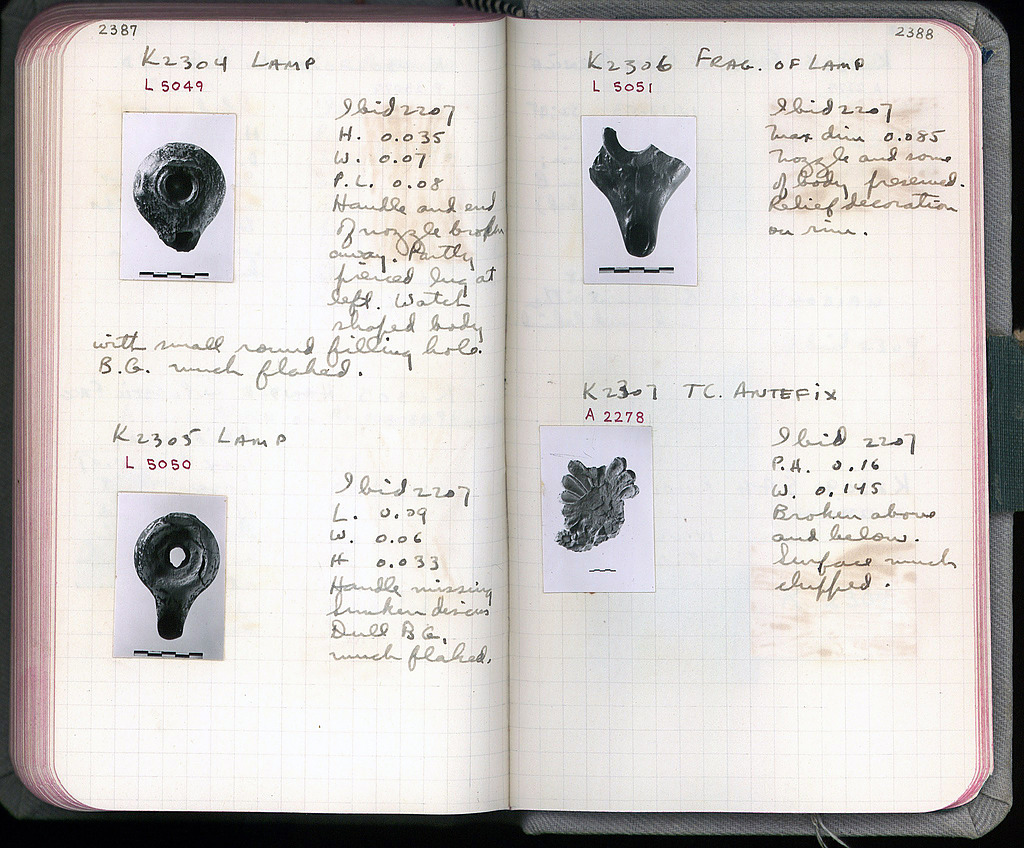 2387
K2304 LAMP
L 5049
Ibid 2207
H. 0.035
W. 0.07
P.L. 0.08
Handle and end
of nozzle broken
away. Partly
pierced lug at
left. Watch
shaped body
with small round filling hole.
B.G. much flaked.
K2305 LAMP
L 5050
Ibid 2207
L. 0.09
W. 0.06
H 0.033
Handle missing
Sunken discus
Dull B.G.
much flaked.
2388
K2306 FRAG. OF LAMP
L 5051
Ibid 2207
Max dim 0.085
Nozzle and some
of body preserved.
Relief decoration
on rim.
K2307 TC. ANTEFIX
A 2278
Ibid 2207
P.H. 0.16
W. 0.145
Broken above
and below.
Surface much
chipped.